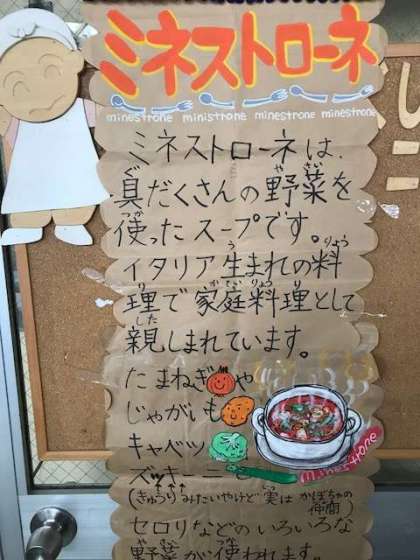 ミネストローネ
minestrone ministrone minestrone minestrone
ミネストローネは、
具だくさんの野菜を
使ったスープです。
イタリア生まれの料
理で家庭料理として
親しまれています。
たまねぎや
じゃがいも
キャベツ
ズッキーニ
(きゅうりみたいやけど実はかぼちゃの仲間)
minestrone
セロリなどのいろいろな
野菜が使われます。